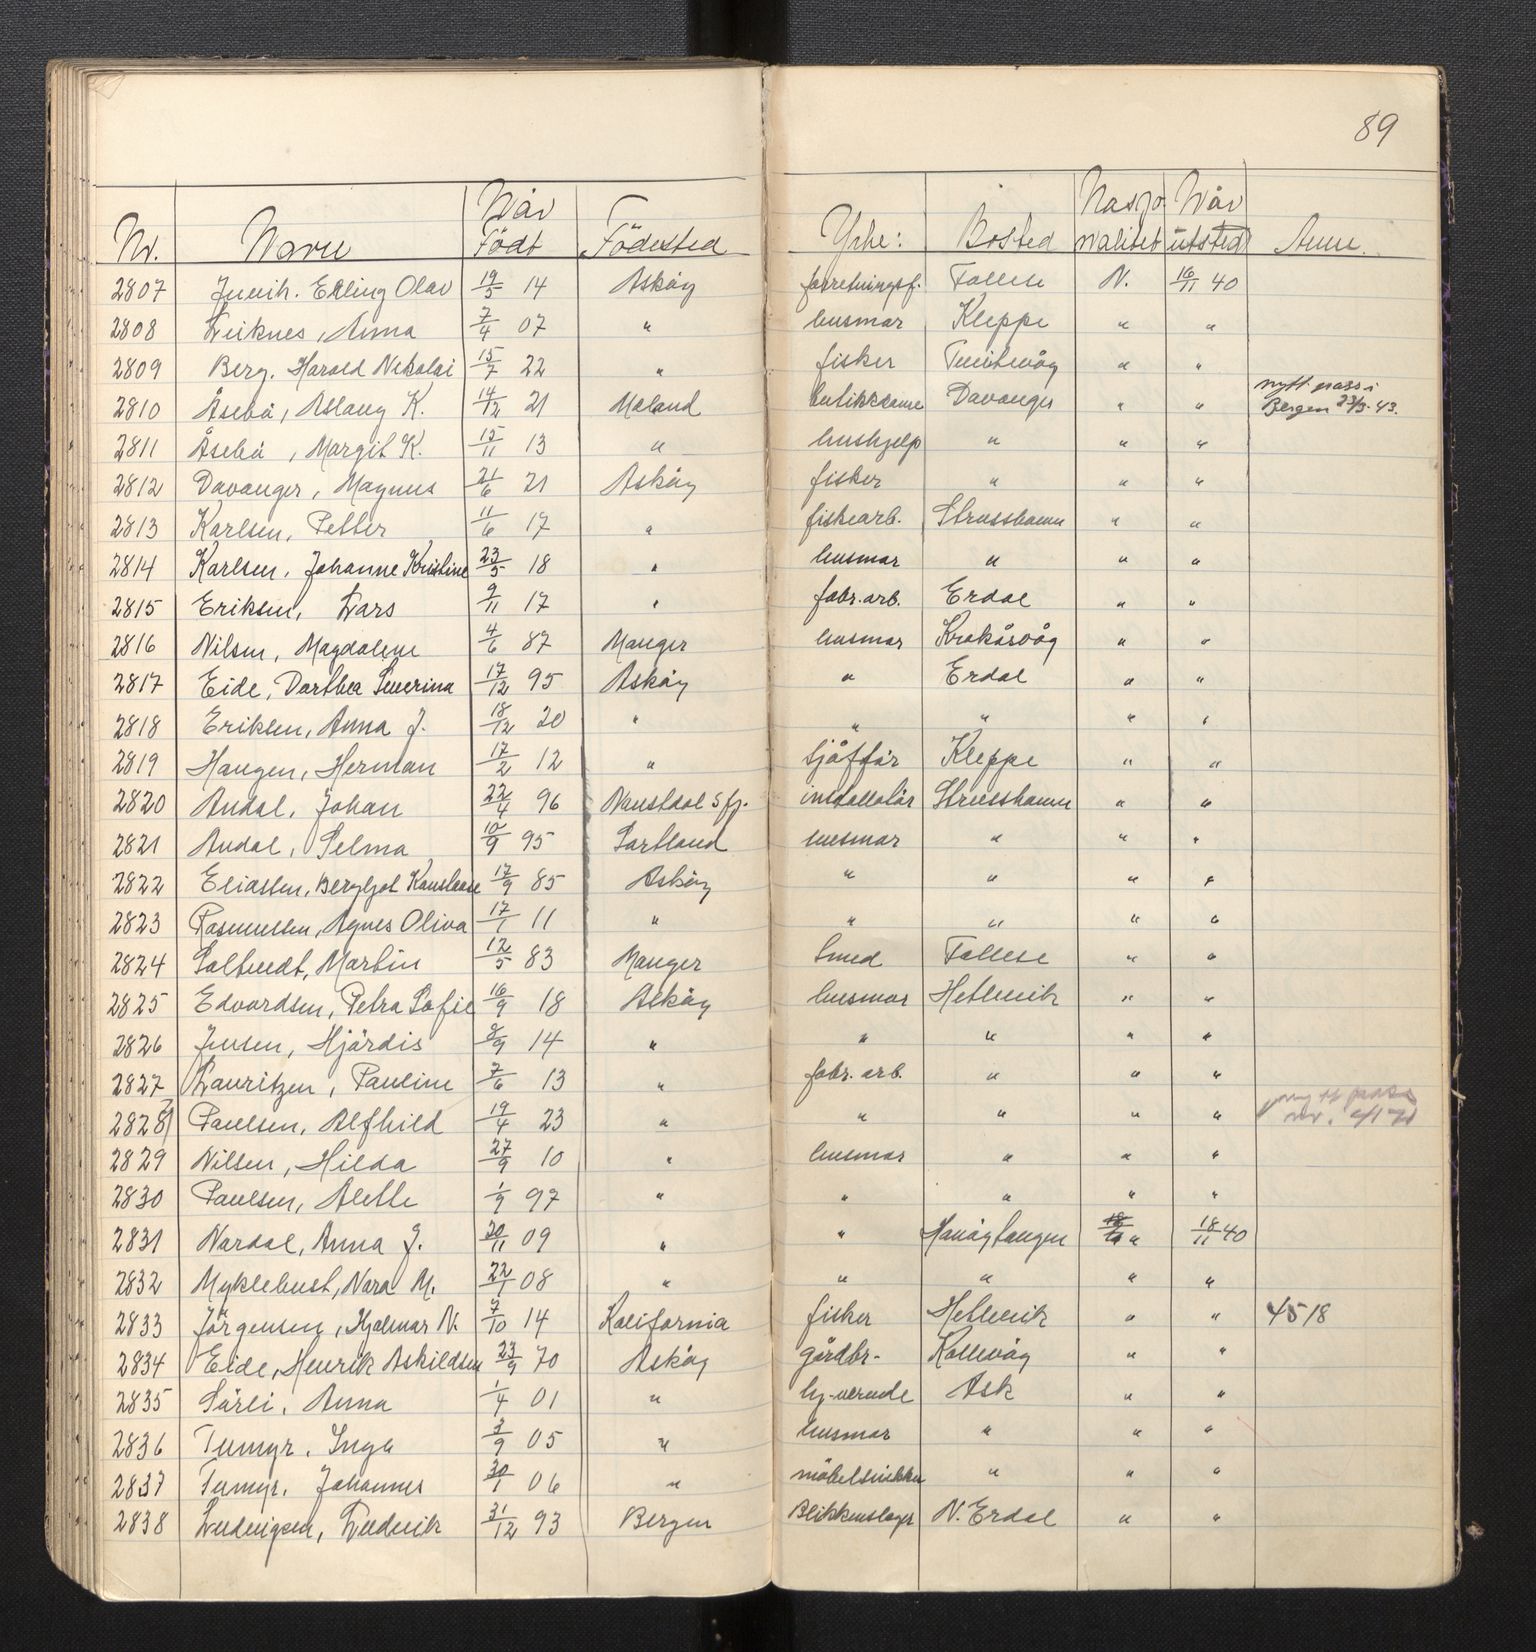 89
Nr. Navn Når Født Födested Yrke: Bosted Nasjonalitet Når utsted Anm.
2807 Erling Olav 19/5 14 Askøy forretningsf. Follese N. 16/11 40
2808 Leiknes, Anna 7/4 07 " husmor Kleppe " "
2809 Berg. Harald Nikolai 15/7 22 " fisker " "
2810 Åsebø, Aslaug K. 14/12 21 Meland butikkdame Davanger " " nytt pass i Bergen 23/3-43.
2811 Åsebø, Margit K. 15/11 13 " hushjelp " " "
2812 Davanger, Magnus 21/6 21 Askøy fisker " " "
2813 Karlsen, Petter 11/6 17 " fiskearb. Strusshamn " "
2814 Karlsen, Johanne Kristine 23/5 18 " husmor " " "
2815 Eriksen, Lars 9/11 17 " fabr. arb. Erdal " "
2816 Nilsen, Magdalene 4/6 87 Manger husmor Krokåsvåg " "
2817 Eide, Dorthea Severina 17/12 95 Askøy " Erdal " "
2818 Eriksen, Anna J. 18/12 20 " " " " "
2819 Haugen, Herman 17/2 12 " Sjåffør Kleppe " "
2820 Andal, Johan 22/4 96 Naustdal S fj. installatør Strusshamn " "
2821 Andal, Selma 10/9 95 Sortland husmor " " "
2822 Eliassen, Bergljot Konstanse 17/9 85 Askøy " " " "
2823 Rasmussen, Agnes Oliva 17/1 11 " " " " "
2824 Saltvedt, Martin 12/5 83 Manger Smed Follese " "
2825 Edvardsen, Petra Sofie 16/9 18 Askøy husmor Hetlevik " "
2826 Jensen, Hjördis 8/9 14 " " " " "
2827 Lauritzen, Pauline 7/6 13 " fabr. arb. " " "
2828 Paulsen, Alfhild 19/4 23 " " " " " nytt pass nr.
2829 Nilsen, Hilda 27/9 10 " husmor " " "
2830 Paulsen, Alette 1/9 97 " " " " "
2831 Nordal, Anna J. 30/11 09 " " Hanøytangen " 18/11 40
2832 Myklebust, Nora M. 22/1 08 " " " " "
2833 Jörgensen, Hjalmar N. 7/10 14 Kalifornia fisker Hetlevik " " 4518
2834 Eide, Henrik Askildsen 23/9 70 Askøy gårdbr- Kollevåg " "
2835 Sörli, Anna 1/4 01 " Ask " "
2836 Tumyr. Inga 3/9 05 " husmor " " "
2837 Tumyr. Johannes 30/1 06 " möbelsnikker " " "
2838 Ludvigsen, Ludvik 31/12 93 Bergen Blikkenslager N. Erdal " "